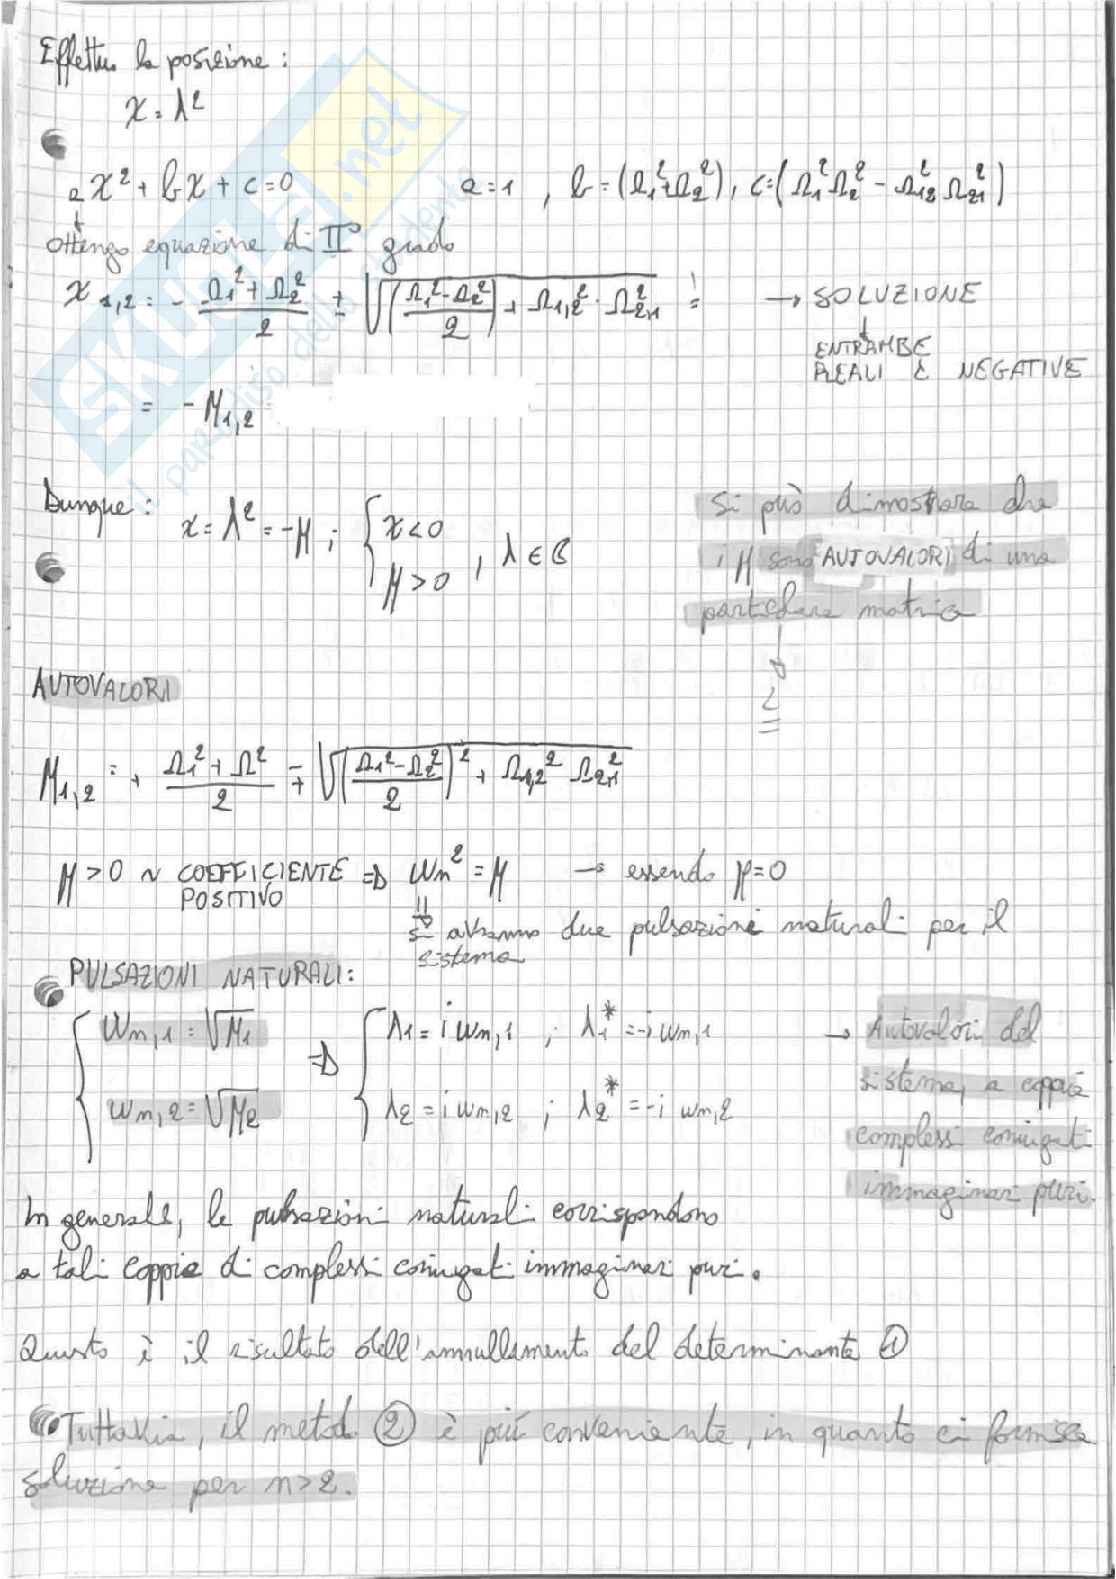 Effettuo la posizione :
x = λ²
a x² + b x + c = 0    a = 1 , b = (Ω₁² + Ω₂²) , c = (Ω₁² Ω₂² - Ω₁₂² Ω₂₁²)
↓
Ottengo equazione di II° grado
x₁,₂ = - (Ω₁² + Ω₂²)/2 ± √((Ω₁² - Ω₂²)/2) + Ω₁,₂² · Ω₂,₁² =    → SOLUZIONE
↓
ENTRAMBE
REALI E NEGATIVE
= - μ₁,₂
Dunque : x = λ² = -μ ; { x < 0
μ > 0 , λ ∈ C
Si può dimostrare che
i μ sono AUTOVALORI di una
particolare matrice
2
AUTOVALORI
μ₁,₂ = + (Ω₁² + Ω²)/2 ∓ √((Ω₁² - Ω₂²)/2)² + Ω₁,₂² Ω₂,₁²
μ > 0 ~ COEFFICIENTE POSITIVO ⇒ ωn² = μ → essendo μ = 0
si avranno due pulsazioni naturali per il
sistema
PULSAZIONI NATURALI :
{ ωn,1 = √μ₁ ⇒ { λ₁ = i ωn,1 ; λ₁* = -i ωn,1
ωn,2 = √μ₂    λ₂ = i ωn,2 ; λ₂* = -i ωn,2
→ Autovalori del
sistema, a coppie
complessi coniugati
immaginari puri.
In generale, le pulsazioni naturali corrispondono
a tali coppie di complessi coniugati immaginari puri.
Questo è il risultato dell'annullamento del determinante ①
Tuttavia, il metodo ② è più conveniente, in quanto ci fornisce
soluzione per n > 2.
SKUOLA.net
il paradiso dello studente